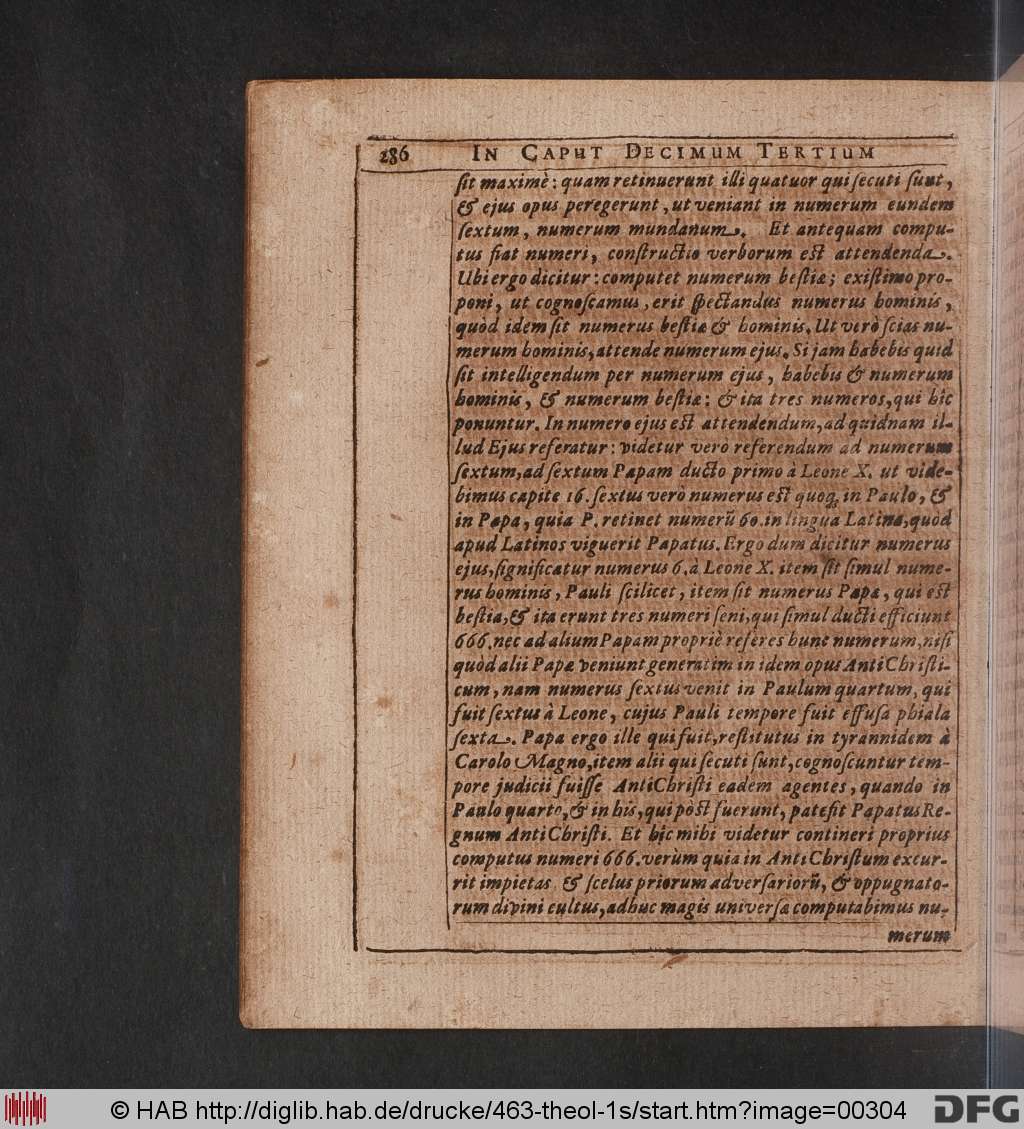 286 IN CAPUT DECIMUM TERTIUM
ſit maximè: quam retinuerunt illi quatuor qui ſecuti ſunt,
& ejus opus peregerunt, ut veniant in numerum eundem
ſextum, numerum mundanum. Et antequam compu-
tus fiat numeri, conſtructio verborum eſt attendenda.
Ubi ergo dicitur: computet numerum beſtiæ; exiſtimo pro-
poni, ut cognoſcamus, erit ſpectandus numerus hominis,
quòd idem ſit numerus beſtiæ & hominis. Ut verò ſcias nu-
merum hominis, attende numerum ejus. Si jam habebis quid
ſit intelligendum per numerum ejus, habebis & numerum
hominis, & numerum beſtiæ: & ita tres numeros, qui hîc
ponuntur. In numero ejus eſt attendendum, ad quidnam il-
lud Ejus referatur: videtur verò referendum ad numerum
ſextum, ad ſextum Papam ducto primo à Leone X. ut vide-
bimus capite 16. ſextus verò numerus eſt quoq; in Paulo, &
in Papa, quia P. retinet numerũ 60. in lingua Latina, quòd
apud Latinos viguerit Papatus. Ergo dum dicitur numerus
ejus, ſignificatur numerus 6. à Leone X. item ſit ſimul nume-
rus hominis, Pauli ſcilicet, item ſit numerus Papæ, qui eſt
beſtia, & ita erunt tres numeri ſeni, qui ſimul ducti efficiunt
666. nec ad alium Papam propriè referes hunc numerum, niſi
quòd alii Papæ veniunt generatim in idem opus AntiChriſti-
cum, nam numerus ſextus venit in Paulum quartum, qui
fuit ſextus à Leone, cujus Pauli tempore fuit effuſa phiala
ſexta. Papa ergo ille qui fuit, reſtitutus in tyrannidem à
Carolo Magno, item alii qui ſecuti ſunt, cognoſcuntur tem-
pore judicii fuiſſe AntiChriſti eadem agentes, quando in
Paulo quarto, & in his, qui pòſt fuerunt, patefit Papatus Re-
gnum AntiChriſti. Et hîc mihi videtur contineri propriùs
computus numeri 666. verùm quia in AntiChriſtum excur-
rit impietas & ſcelus priorum adverſariorũ, & oppugnato-
rum divini cultus, adhuc magis univerſa computabimus nu-
merum
© HAB http://diglib.hab.de/drucke/463-theol-1s/start.htm?image=00304 DFG